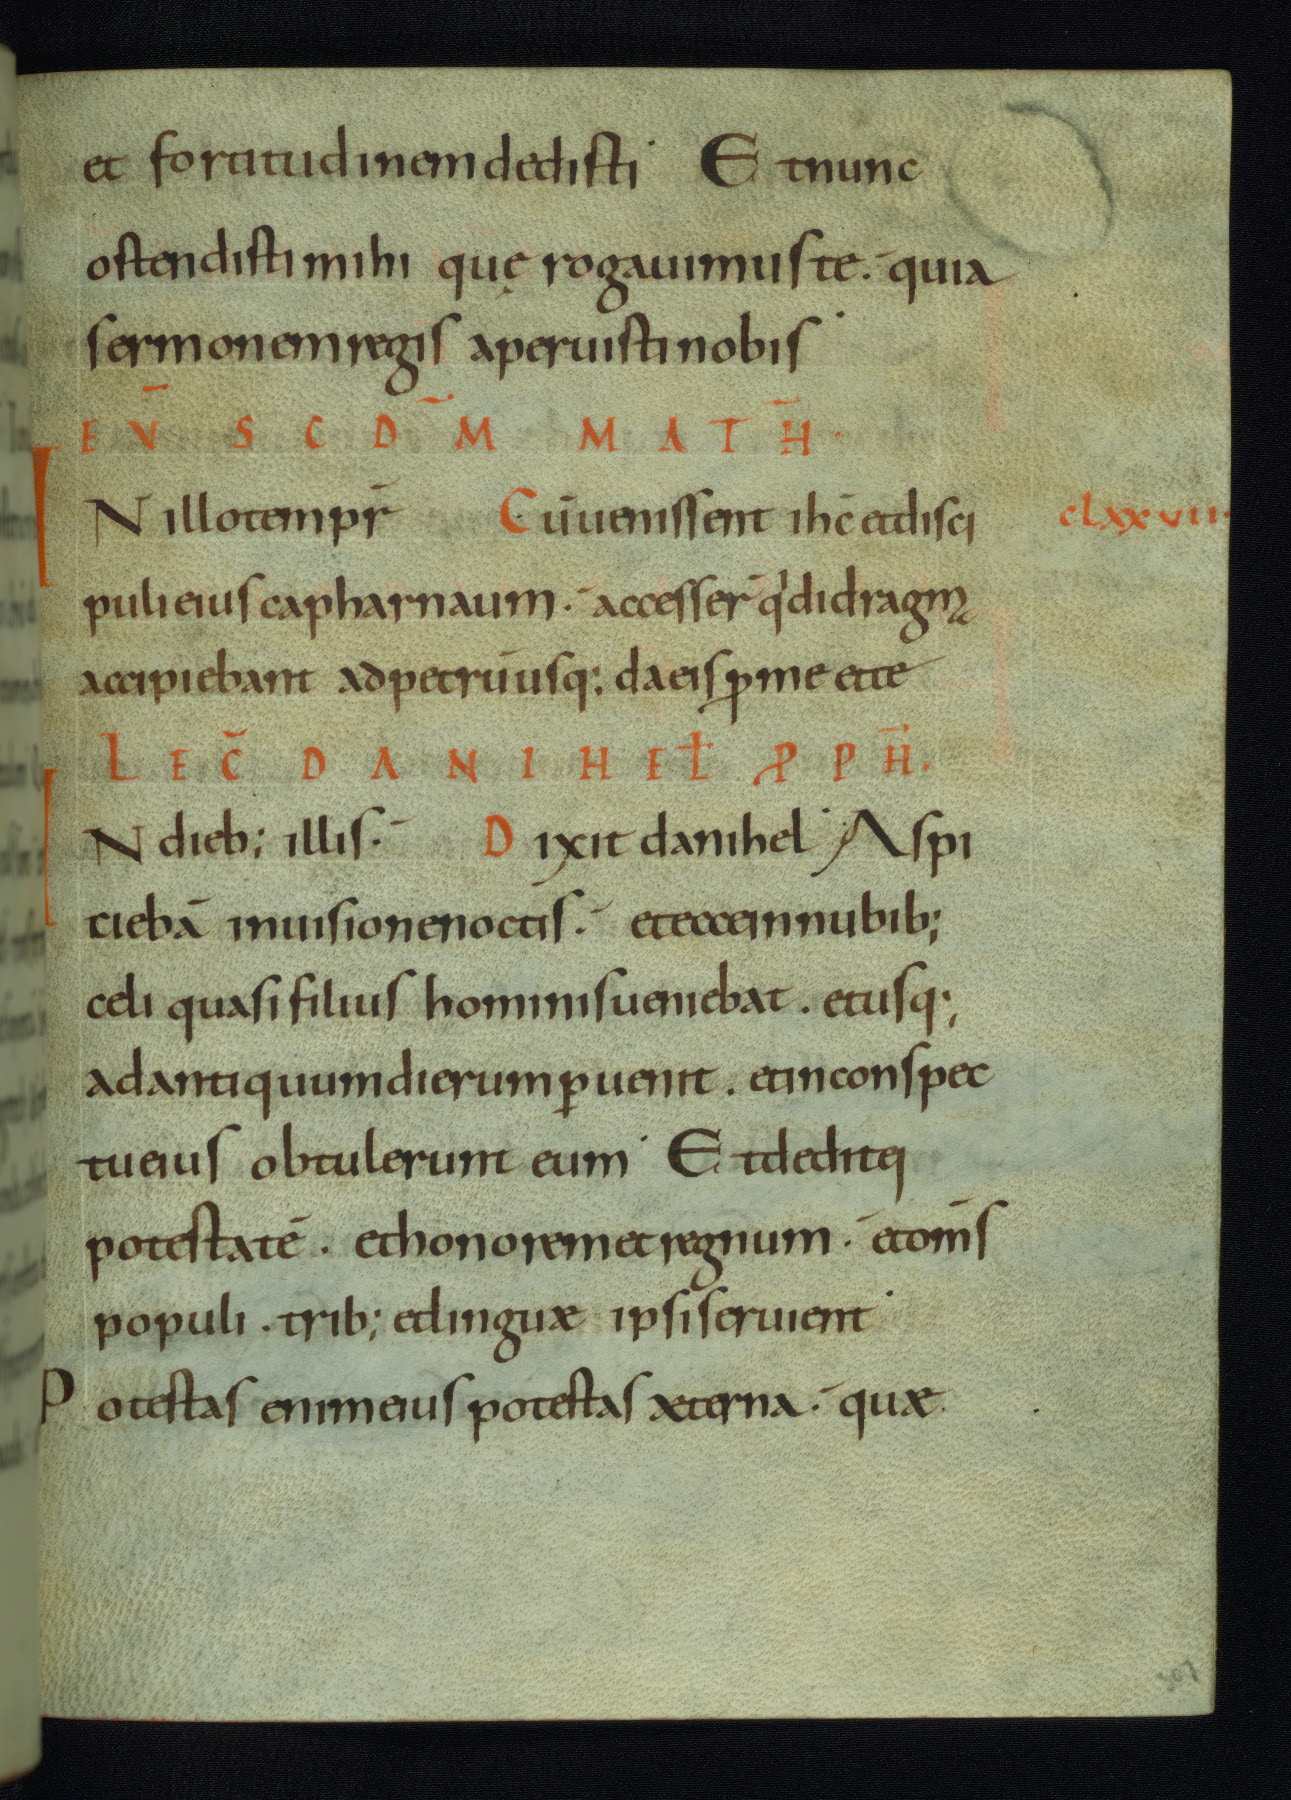 et fortitudinem dedisti Et nunc
ostendisti mihi quę rogauimus te. quia
sermonem regis aperuisti nobis
EV̄ SCD̄M MATH̄.
IN illo tempr̄ Cū uenissent ihc̄ et disci
puli eius capharnaum. accesser̄ q didragm
accipiebant ad petrū usq; da eis ꝑ me et te
LEC̄ DANIHEL PPH̄.
IN dieb; illis. Dixit danihel Aspi
ciebā in uisione noctis. et ecce in nubib;
celi quasi filius hominis ueniebat. et usq;
ad antiquum dierum ꝑuenit. et in conspec
tu eius obtulerunt eum Et dedit ei
potestatē. et honorem et regnum. et om̄s
populi. trib; et linguæ ipsi seruient
Potestas enim eius potestas æterna. quæ
clxxvii.